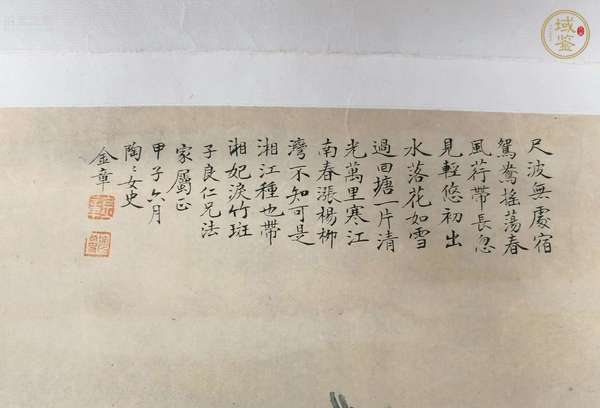 尺波無處宿
鴛鴦搖蕩春
風荇帶長忽
見輕悠初出
水落花如雪
過回塘一片清
光萬里寒江
南春漲楊柳
灣不知可是
湘江種也帶
湘妃淚竹斑
子良仁兄法
家屬正
甲子六月
陶陶女史
金章
域鑒